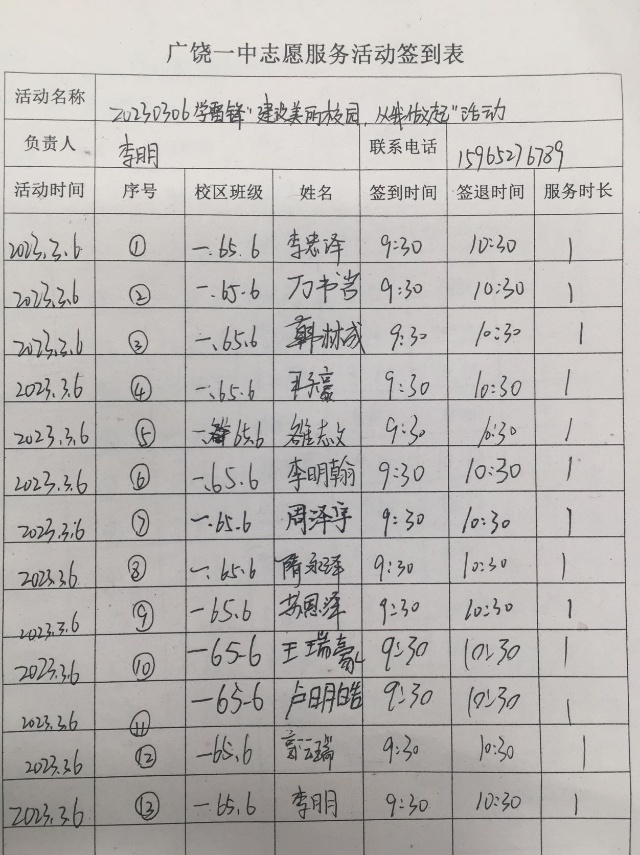 广饶一中志愿服务活动签到表
活动名称 20230306学雷锋"建设美丽校园，从我做起"活动
负责人 李明 联系电话 15965276789
活动时间 序号 校区班级 姓名 签到时间 签退时间 服务时长
2023.3.6 ① 一.65.6 李忠泽 9:30 10:30 1
2023.3.6 ② 一.65.6 万书岩 9:30 10:30 1
2023.3.6 ③ 一.65.6 韩林成 9:30 10:30 1
2023.3.6 ④ 一.65.6 9:30 10:30 1
2023.3.6 ⑤ 一 65.6 志文 9:30 10:30 1
2023.3.6 ⑥ 一.65.6 李明翰 9:30 10:30 1
2023.3.6 ⑦ 一.65.6 周泽宇 9:30 10:30 1
2023.3.6 ⑧ 一.65.6 隋永泽 9:30 10:30 1
2023.3.6 ⑨ 一65.6 苏恩泽 9:30 10:30 1
2023.3.6 ⑩ 一65-6 王瑞豪 9:30 10:30 1
2023.3.6 ⑪ 一65-6 卢明皓 9:30 10:30 1
2023.3.6 ⑫ 一65.6 瑞 9:30 10:30 1
2023.3.6 ⑬ 一65.6 李明 9:30 10:30 1